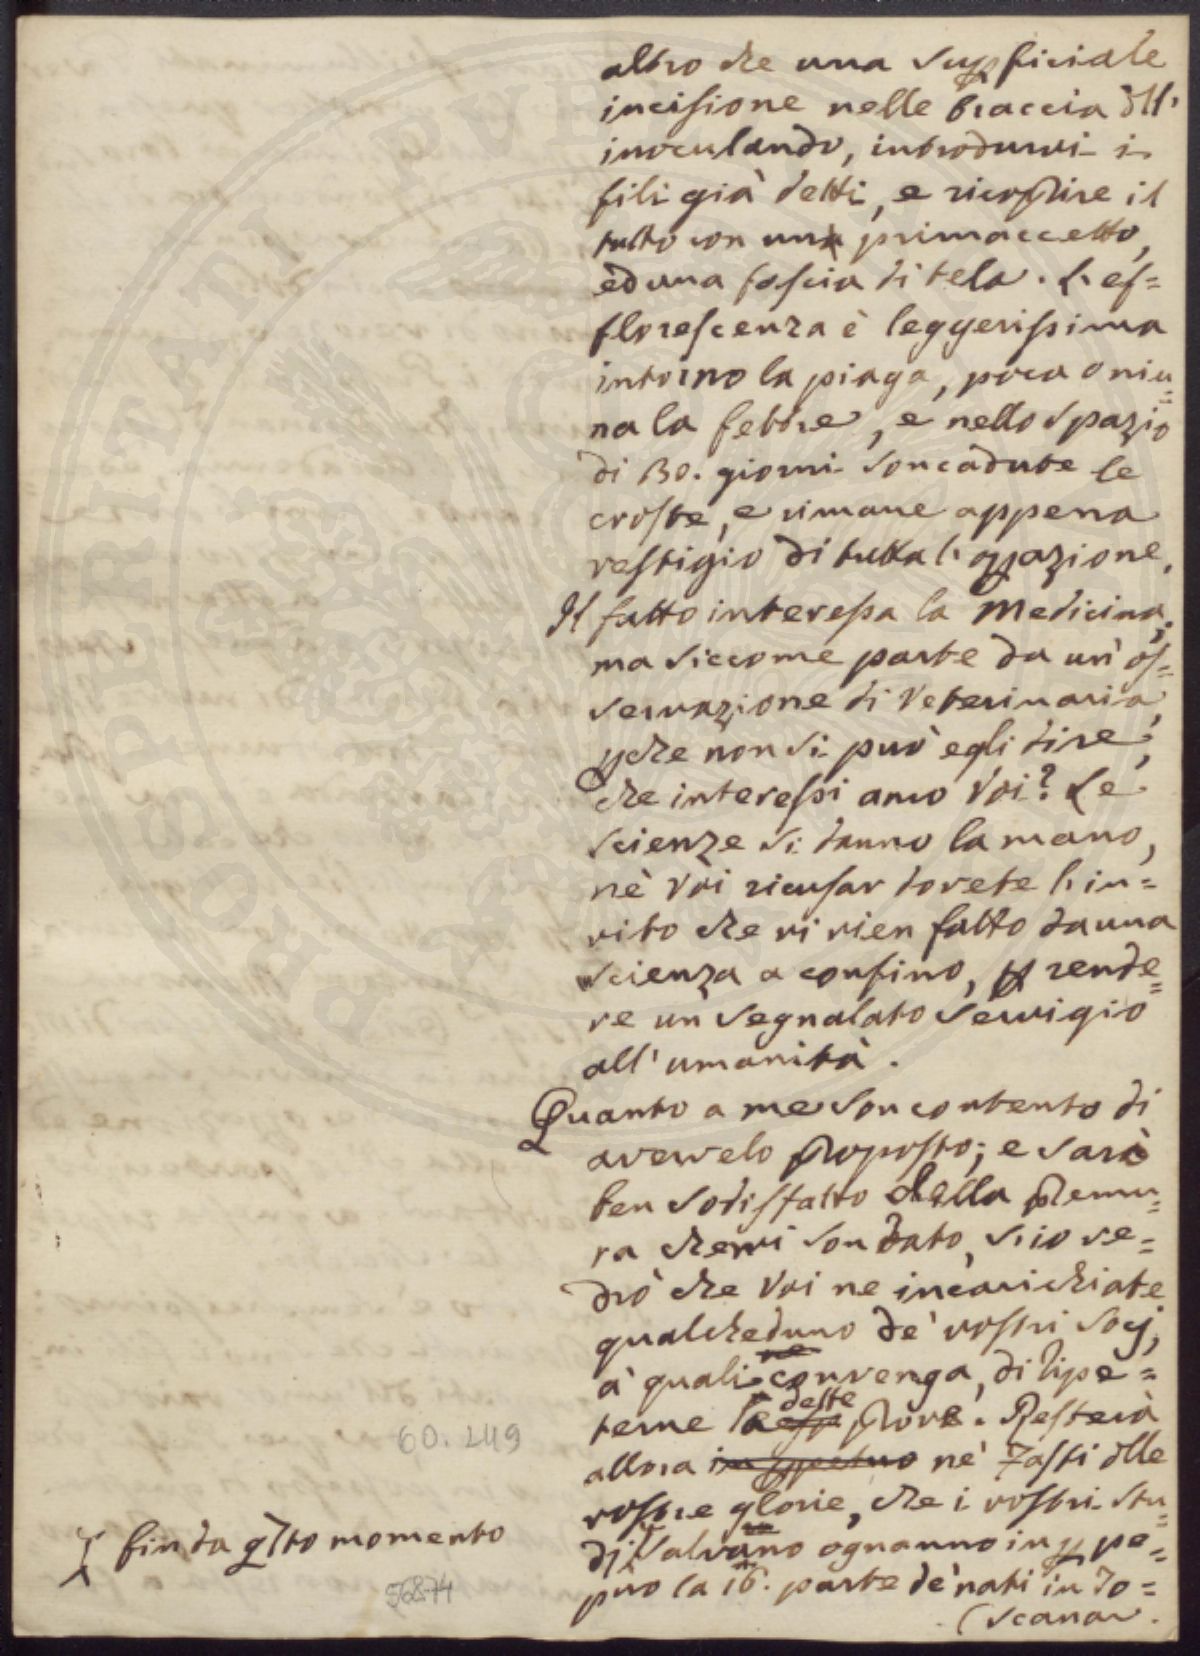 altro che una superficiale
incisione nelle braccia dell'
inoculando, introdurvi i
fili già detti, e ricoprire il
tutto con una primaccetto,
ed una fascia di tela. L'ef=
florescenza è leggerissima
intorno la piaga, poca o niu=
na la febbre, e nello spazio
di 30. giorni son cadute le
croste, e rimane appena
vestigio di tutta l'operazione.
Il fatto interessa la Medicina,
ma siccome parte da un' os=
servazione di Veterinaria,
perche non si può egli dire,
che interessi anco Voi? Le
scienze si danno la mano,
nè Voi ricusar dovete l'in=
vito che vi vien fatto da una
scienza a confino, per rende=
re un segnalato servigio
all' umanità.
Quanto a me son contento di
avervelo proposto; e sarò
ben sodisfatto della premu=
ra che mi son dato, s'io ve=
drò che Voi ne incarichiate
qualcheduno de' vostri Socj,
a' quali convenga, di ripe=
terne le dette prove. Resterà
allora ne' Fasti delle
vostre glorie, che i vostri stu=
dj salvano ognanno in perpe=
tuo la 16. parte de' nati in To=
(scana.
fin da questo momento
60. 249
56874
PROSPERITATI PUBLICAE